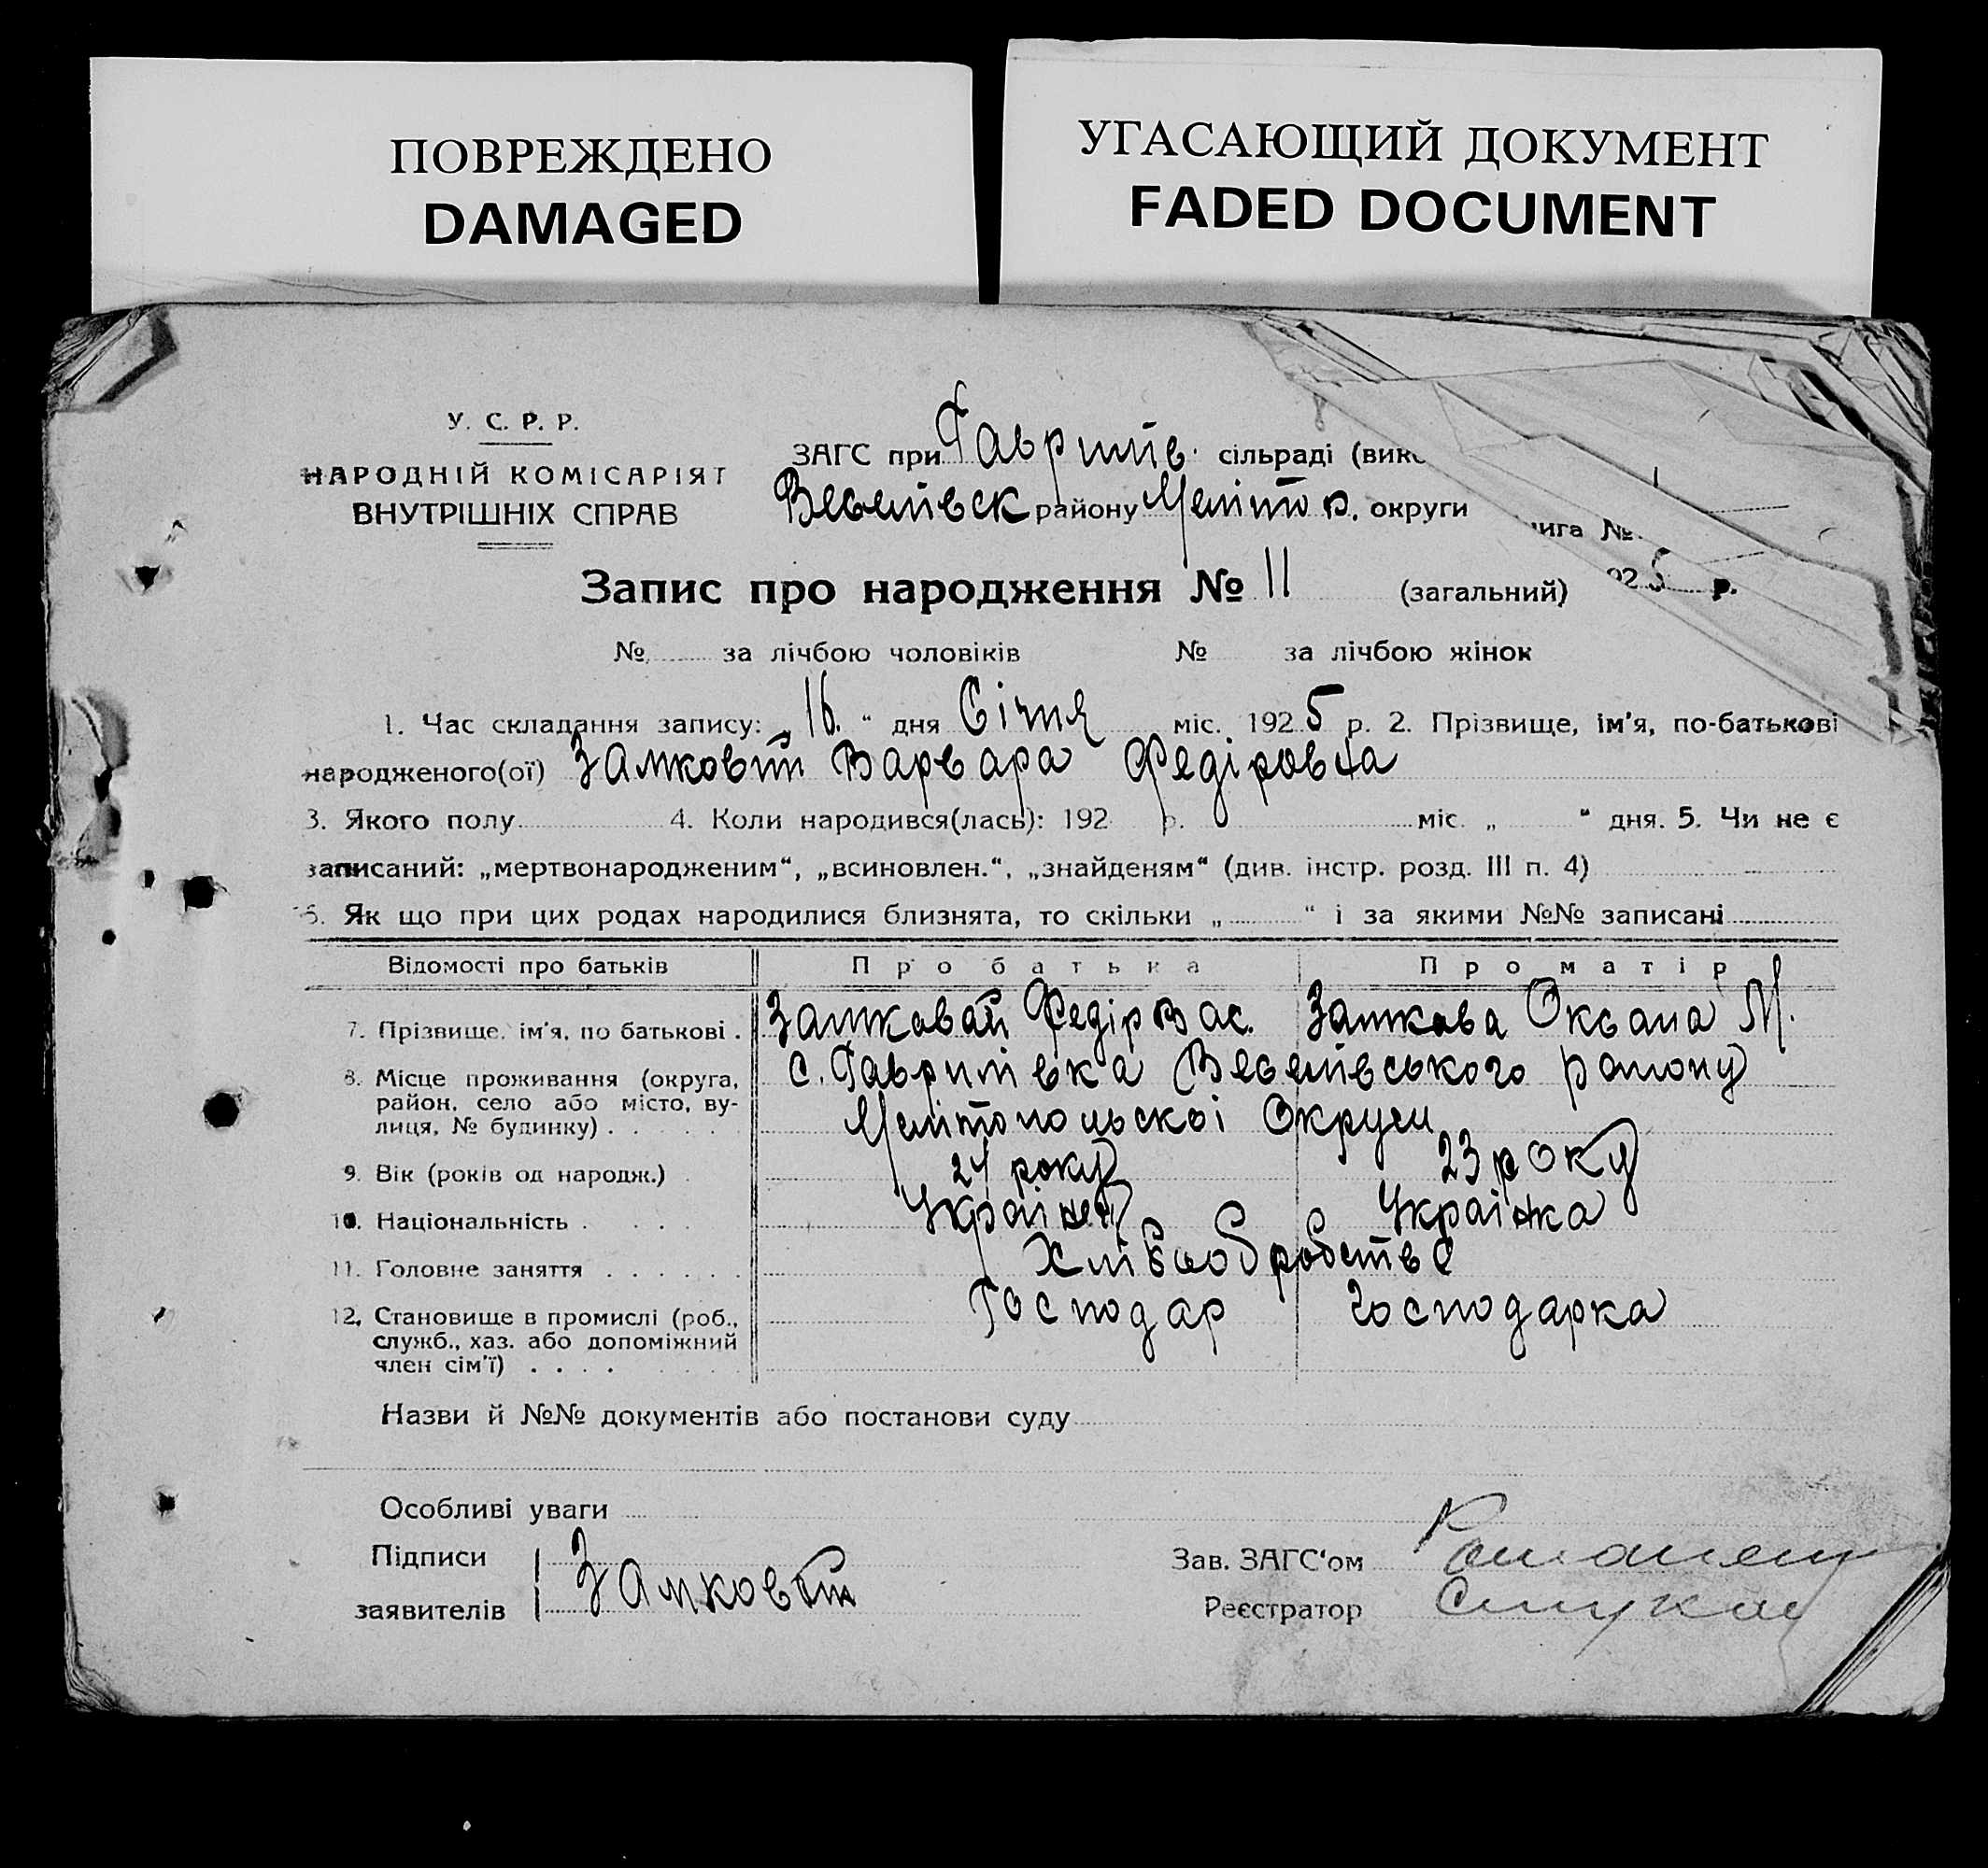 ПОВРЕЖДЕНО
DAMAGED
УГАСАЮЩИЙ ДОКУМЕНТ
FADED DOCUMENT
У. С. Р. Р.
НАРОДНІЙ КОМІСАРІЯТ
ВНУТРІШНІХ СПРАВ
ЗАГС при Гаврилів. сільраді (вико
Веселівськ району Меліто п. округи
ига №
92 5 р.
Запис про народження № 11 (загальний)
№ за лічбою чоловіків № за лічбою жінок
1. Час складання запису: „ 16. “ дня Січня міс. 192 5 р. 2. Прізвище, ім'я, по-батькові
народженого(ої) Замковий Варвара Федіровна
3. Якого полу 4. Коли народився(лась): 192 р. міс. „ “ дня. 5. Чи не є
записаний: „мертвонародженим“, „всиновлен.“, „знайденям“ (див. інстр. розд. III п. 4)
6. Як що при цих родах народилися близнята, то скільки „ “ і за якими №№ записані
Відомості про батьків Про батька Про матір
7. Прізвище, ім'я, по батькові . Замковай Федір Вас. Замкова Оксана М.
8. Місце проживання (округа, район, село або місто, ву-
лиця, № будинку) . . . . . с. Гаврилівка Веселівського району
Мелітопольскоі Округи
9. Вік (років од народж.) . 24 року 23 року
10. Національність . . . . Українец Українка
11. Головне заняття . . . . . . Хлібообробство
12. Становище в промислі (роб., Господар господарка
служб., хаз. або допоміжний
член сім'ї) . . . .
Назви й №№ документів або постанови суду
Особливі уваги
Підписи
заявителів Замковой
Зав. ЗАГС'ом
Реєстратор